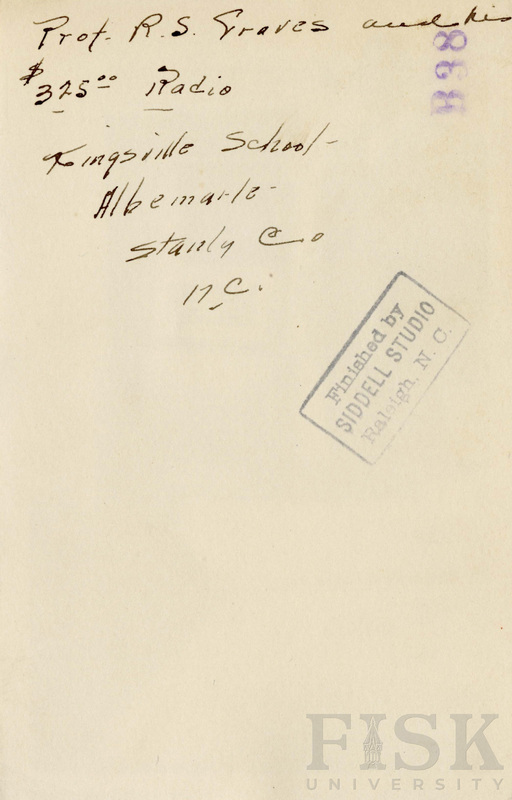 Prof. R.S. Graves and his
$325.00 Radio
Kingsville School-
Albemarle-
Stanly Co
N.C.
B38
Finished by
SIDDELL STUDIO
Raleigh, N. C.
FISK
UNIVERSITY